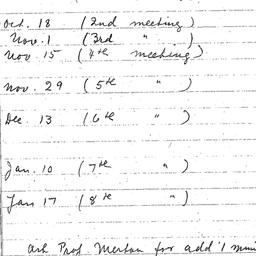 Oct. 18 (2nd meeting)
Nov. 1 (3rd " )
Nov. 15 (4th meeting)
Nov. 29 (5th " )
Dec. 13 (6th " )
Jan. 10 (7th " )
Jan 17 (8th " )
Ask Prof. Merton for add'l